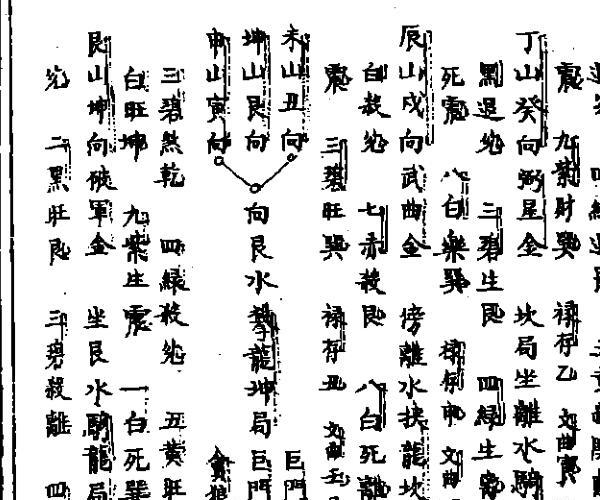 四綠
震 九紫財巽 祿存乙 文曲寅
丁山癸向弼星金 坎局坐離水騎
黑退兌 三碧生艮 四綠生
死震 八白樂巽 祿存申 文曲
辰山戌向武曲金 傍離水挾龍坎
白殺兌 七赤殺艮 八白死離
震 三碧旺巽 祿存丑 文曲壬
未山丑向 巨門
坤山艮向 向艮水擎龍坤局巨門
申山寅向 貪狼
三碧煞乾 四綠殺兌 五黃旺
白旺坤 九紫生震 一白死巽
艮山坤向破軍金 坐艮水騎龍局
兌 二黑旺艮 三碧殺離 四